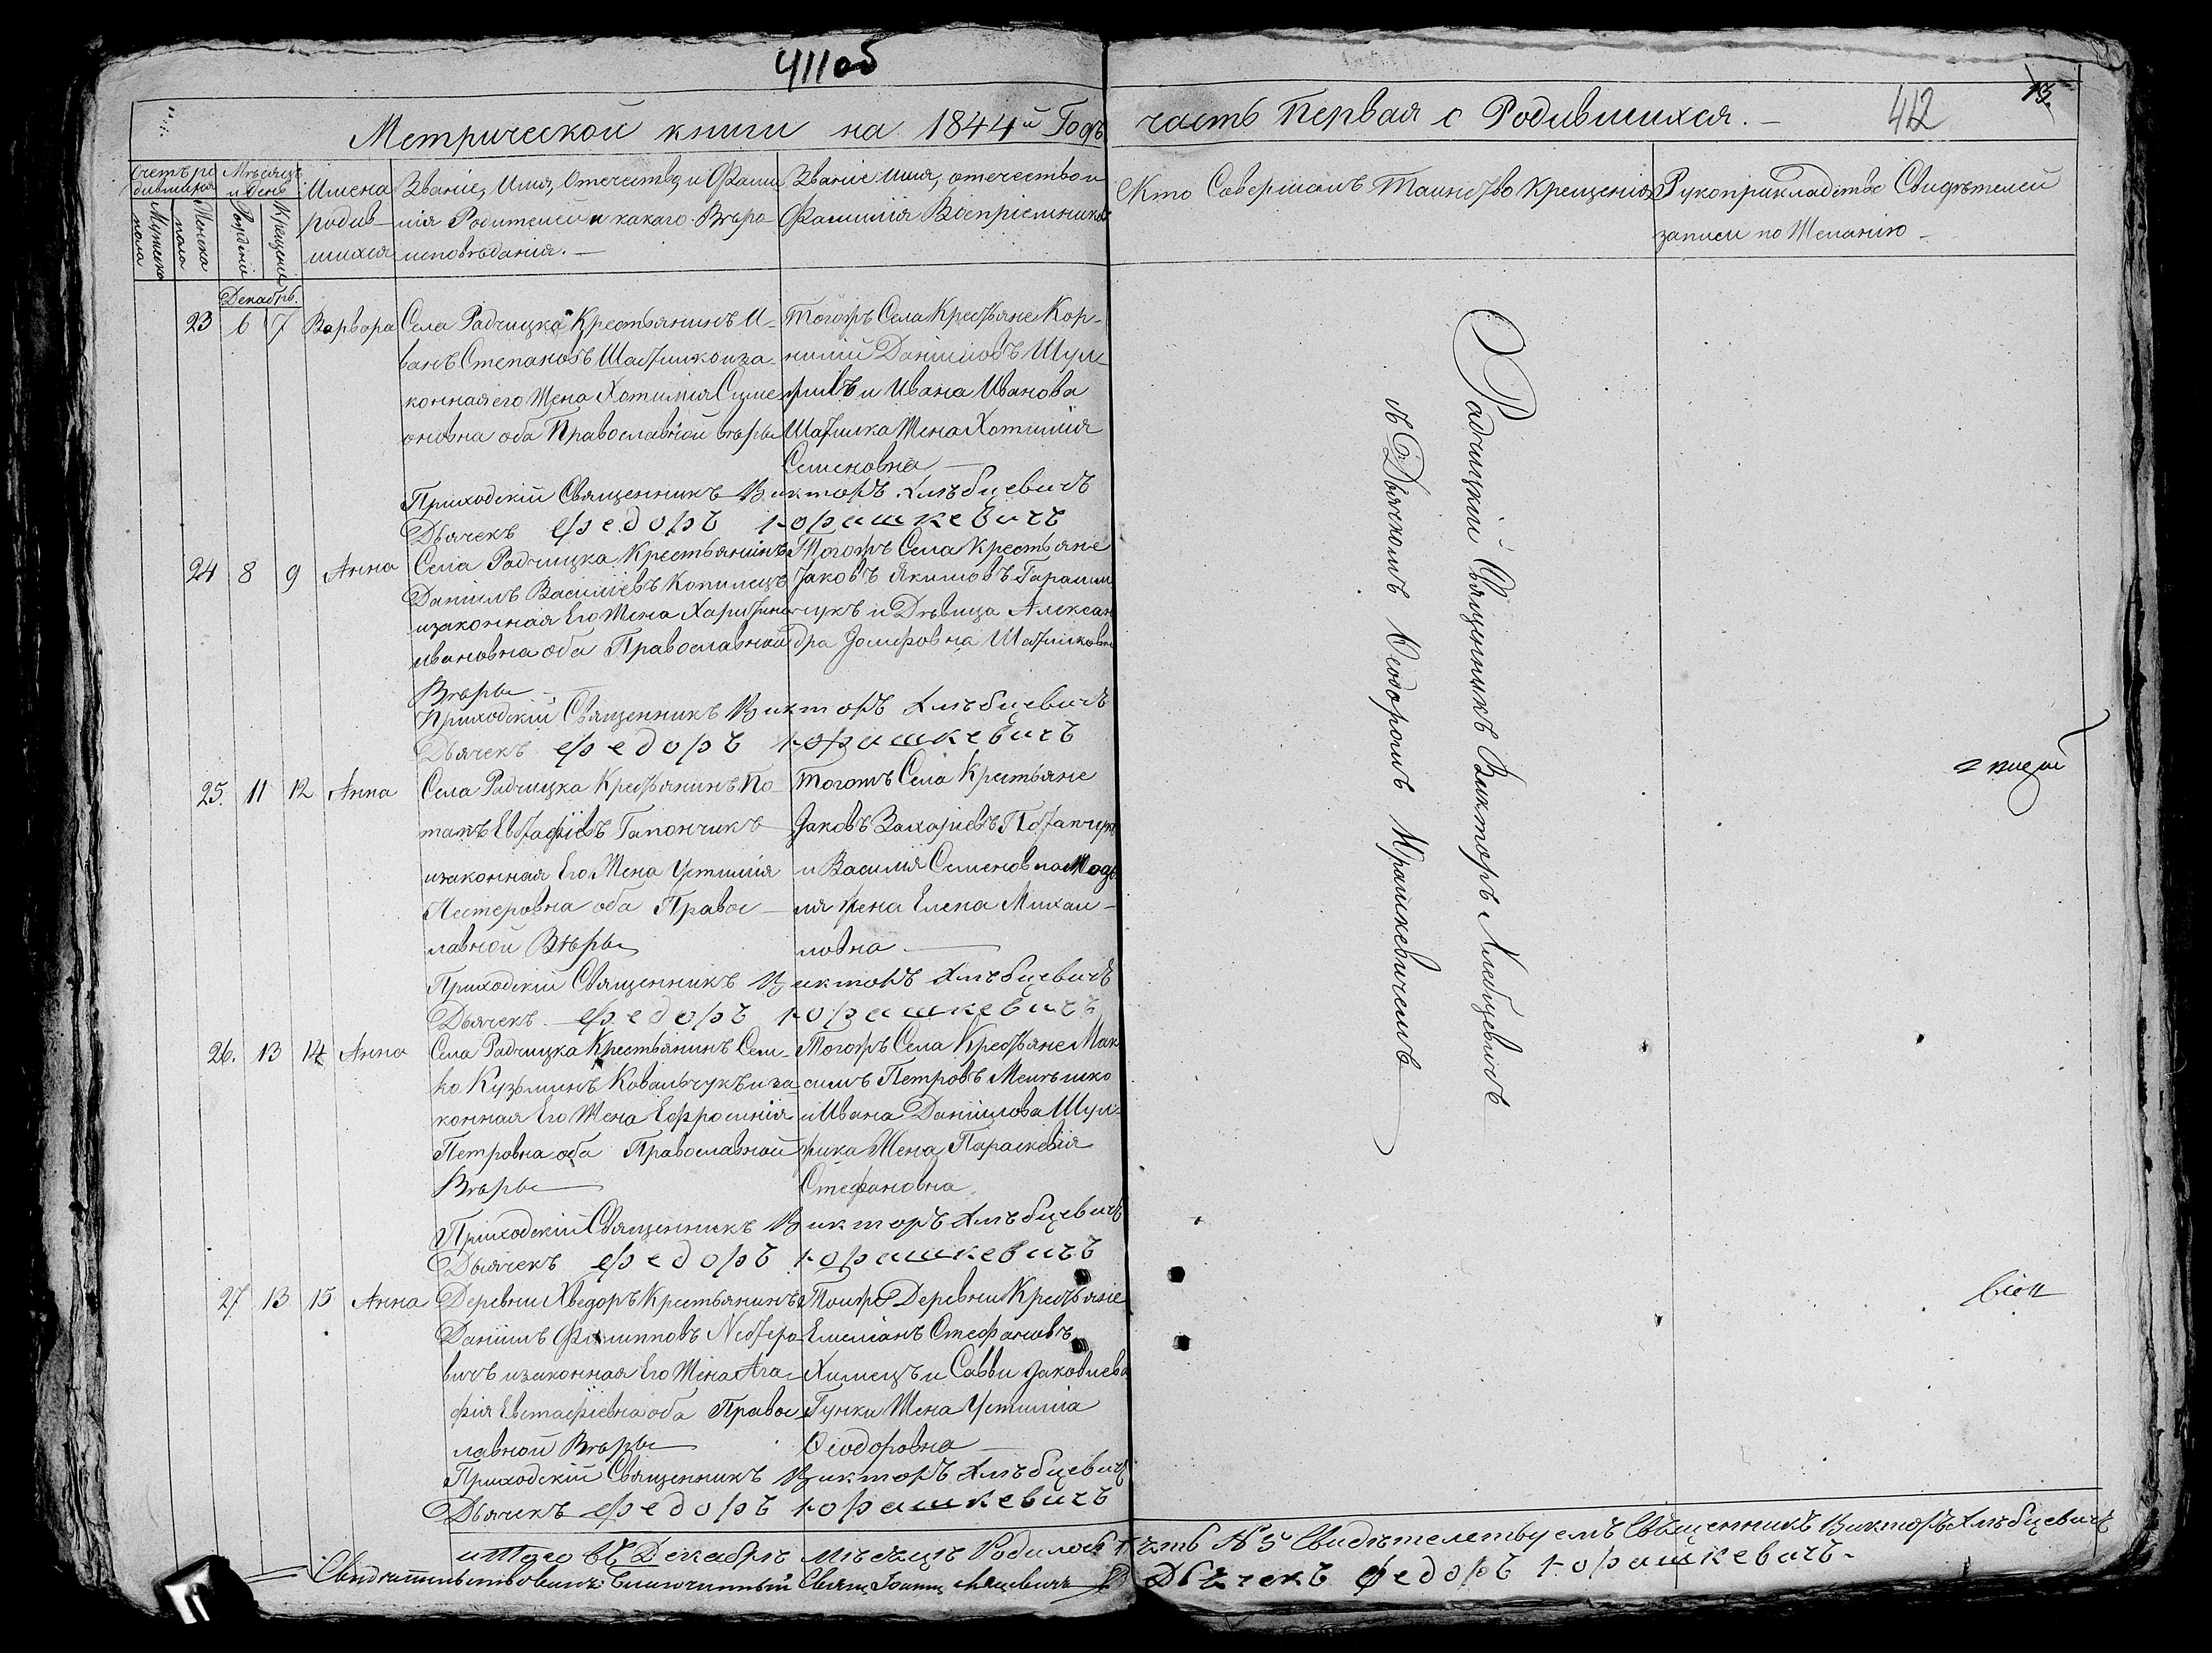 411об
Метрической книги на 1844й Годъ часть Первая о Родившихся. —
412
13.
Счетъ ро
дившихся
Мѣсяцъ
и день
Мужеска
пола
Женска
пола
Рожденія
Крещенія
Имена
родив-
шихся
Званіе, Имя, Отечество, и Фами
лія Родителей и какаго Вѣро
исповѣданія. —
Званіе имя, отечество и
Фамилія Воспріемниковъ
Кто Совершалъ Таинство Крещенія
Рукоприкладство Свидѣтелей
записи по Желанію —
Декабрь.
23 6 7 Варвора
Села Радчицка Крестьянинъ И-
ванъ Степановъ Шатилко и за-
конная его Жена Хотимія Симе
оновна оба Православной вѣры
Тогожъ Села Крестьяне Кор-
нилій Даніиловъ Шул-
жикъ и Ивана Иванова
Шатилка Жена Хотимія
Семеновна —
Приходскій Священникъ Викторъ Хлѣбцевичъ
Дьячекъ федоръ юрашкевичъ
24 8 9 Анна
Села Радчицка Крестьянинъ
Даніилъ Василіевъ Копилецъ
изаконная Его Жена Харитина
ивановна оба Православной
Вѣры —
Тогожъ Села Крестьяне
Јаковъ Якимовъ Гарашу
чукъ и Дѣвица Алексан
дра Јосифовна Шатилковна
Приходскій Священникъ Викторъ Хлѣбцевичъ
Дьячекъ федоръ юрашкевичъ
25. 11 12 Анна
Села Радчицка Крестьянинъ По-
тапъ Евстафіевъ Гапончикъ
изаконная Его Жена Устинія
Нестеровна оба Правос —
лавной Вѣры
Тогожъ Села Крестьяне
Јаковъ Захаріевъ Потапчукъ
и Василія Семенов
ля жена Елена Михаи —
ловна —
Приходскій Священникъ Викторъ Хлѣбцевичъ
Дьячекъ федоръ юрашкевичъ
26. 13 14 Анна
Села Радчицка Крестьянинъ Сем-
ко Кузьминъ Ковальчукъ и за
конная Его Жена Ефросинія
Петровна оба Православной
Вѣры —
Тогожъ Села Крестьяне Мак
симъ Петровъ Мелешко
и Ивана Даніилова Шул-
жика Жена Параскевія
Стефановна
Приходскій Священникъ Викторъ Хлѣбцевичъ
Дьячекъ федоръ юрашкевичъ
27. 13 15 Анна
Деревни Хведоръ Крестьянинъ
Даніилъ Филипповъ Нестеро
вичъ изаконная Его Жена Ага-
фія Евстафіевна оба Правос
лавной Вѣры —
Тойжъ Деревни Крестьяне
Емеліанъ Стефановъ
Химецъ и Савви Јаковлева
Гунки Жена Устинія
Ѳеодоровна —
Приходскій Священникъ Викторъ Хлѣбцевичъ
Дьячекъ федоръ юрашкевичъ
Радчицкій Священникъ Викторъ Хлебцевичъ
съ Дьячкомъ Ѳеодоромъ Юрашкевичемъ
итого въ Декабрѣ мѣсяцѣ Родилось пять № 5 Свидѣтелствуемъ Священникъ Викторъ Хлѣбцевичъ
Дьячекъ федоръ юрашкевичъ-
Свидѣтельствовалъ Благочинный Свящ. Іоаннъ